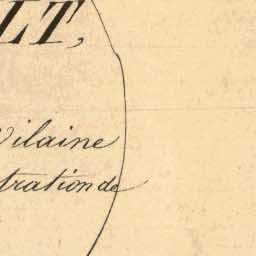 LT,
Vilaine
tration de